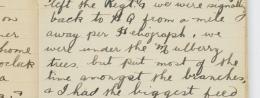 left the Regt's we were signalling
on back to H Q from a mile
away per Helograph, we
were under the Mulberry
home
oclock trees. but put most of the
time amongst the branches,
& I had the biggest feed